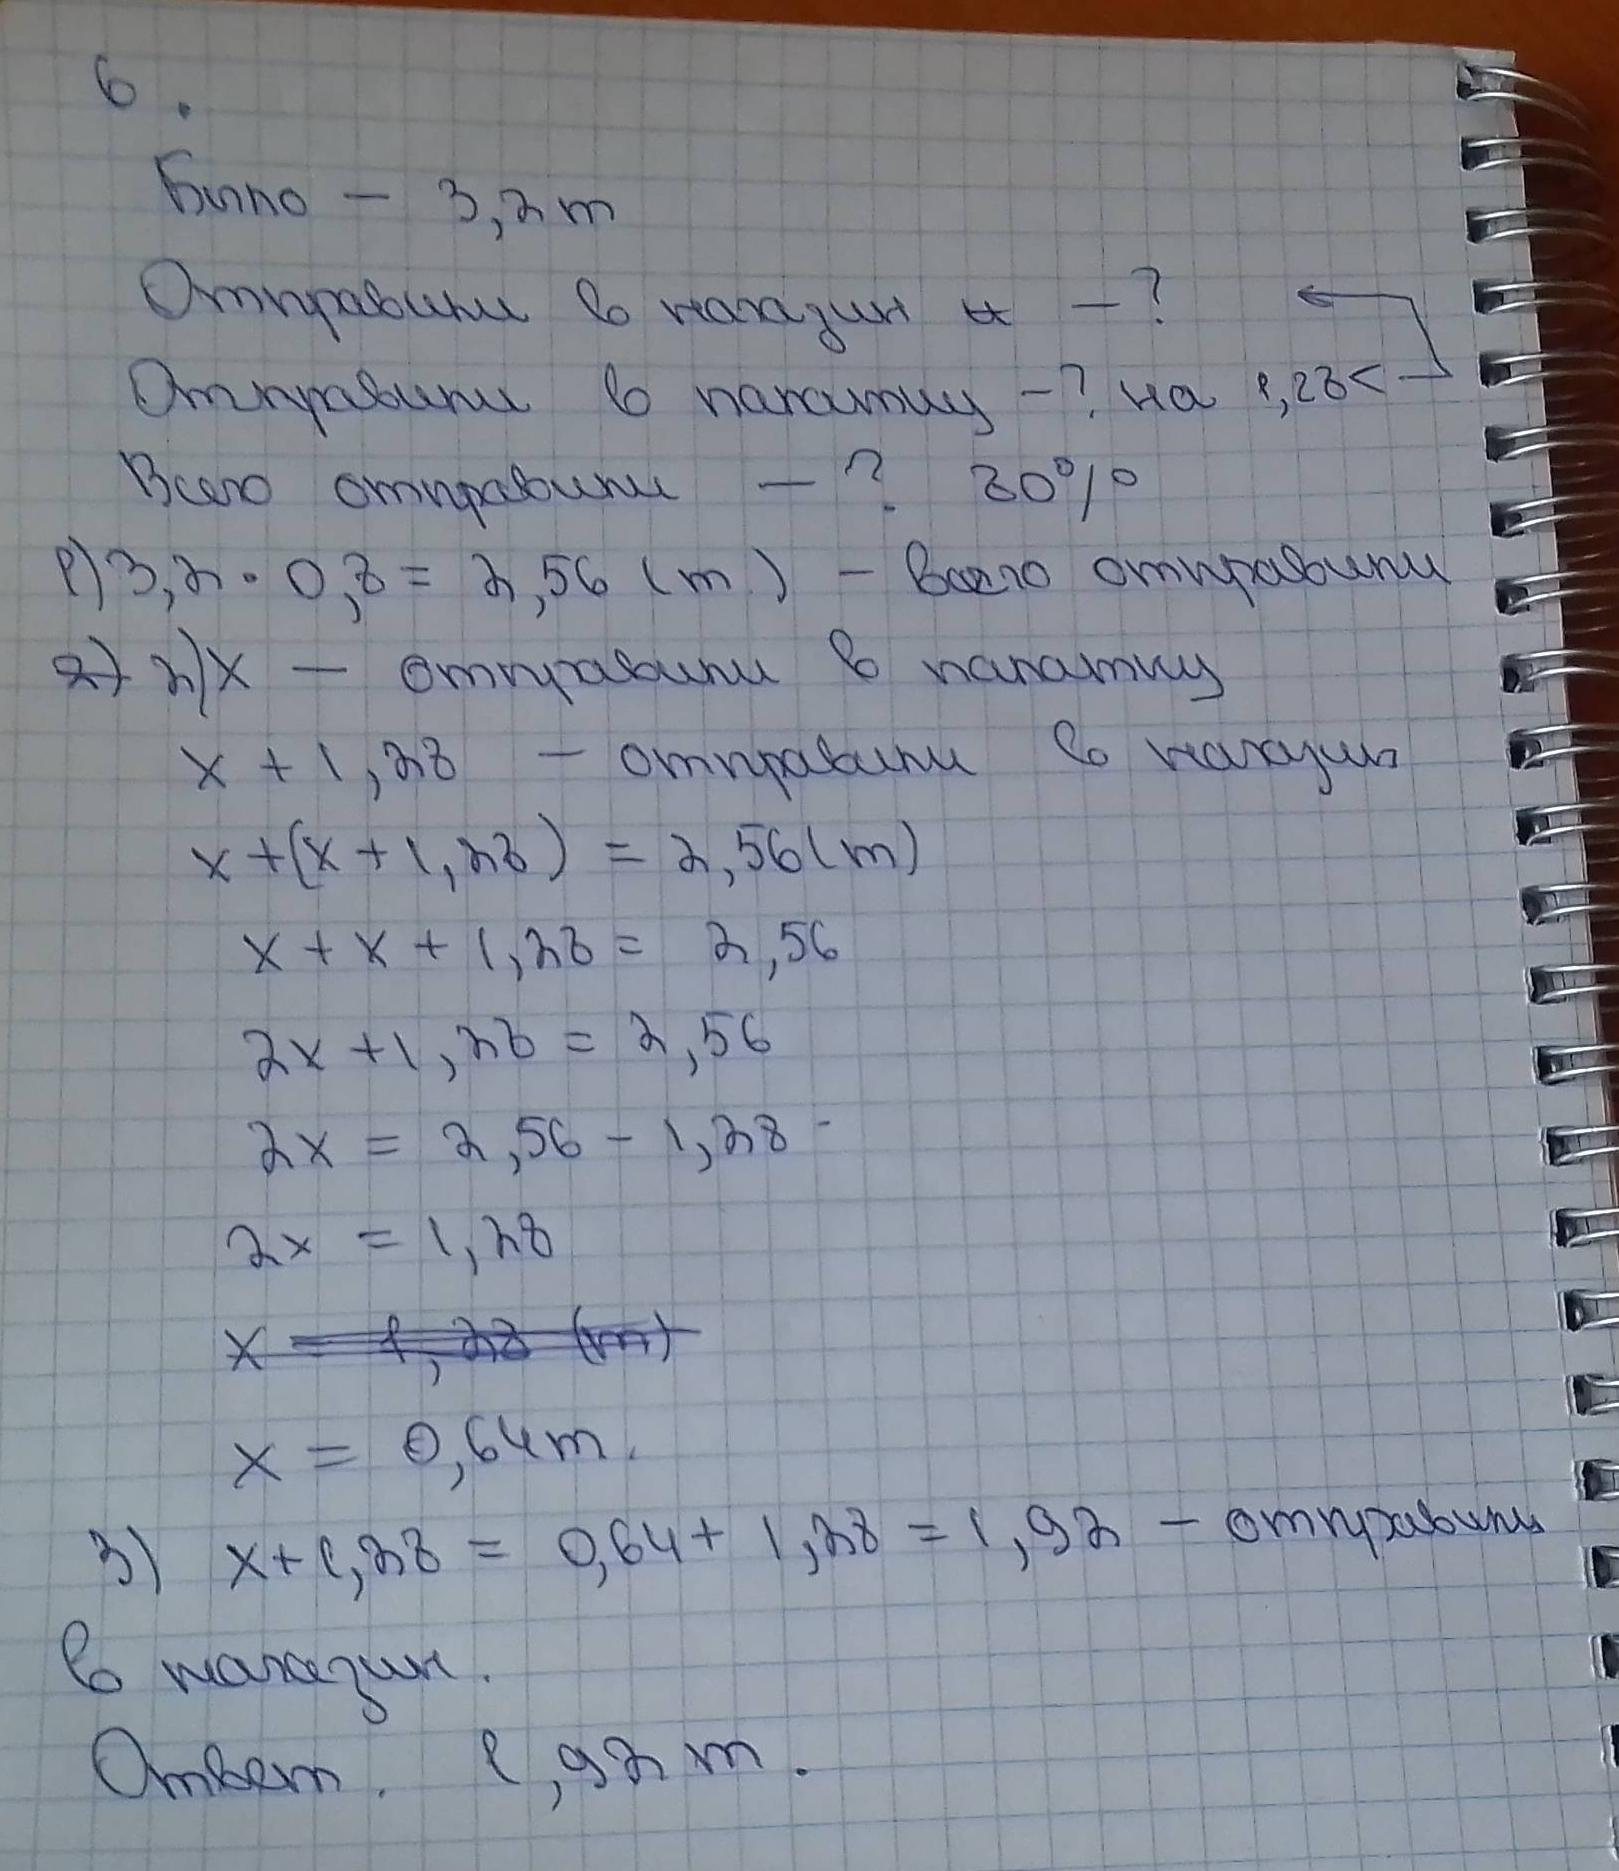 6.
Было – 3,2 т
Отправили в магазин – ?
Отправили в палатку – ? на 1,28 <
Всего отправили – ? 80%
1) 3,2 · 0,8 = 2,56 (т) – всего отправили
2) 2) x – отправили в палатку
x + 1,28 – отправили в магазин
x + (x + 1,28) = 2,56 (т)
x + x + 1,28 = 2,56
2x + 1,28 = 2,56
2x = 2,56 – 1,28
2x = 1,28
x = 1,28 (т)
x = 0,64 т.
3) x + 1,28 = 0,64 + 1,28 = 1,92 – отправили
в магазин.
Ответ. 1,92 т.